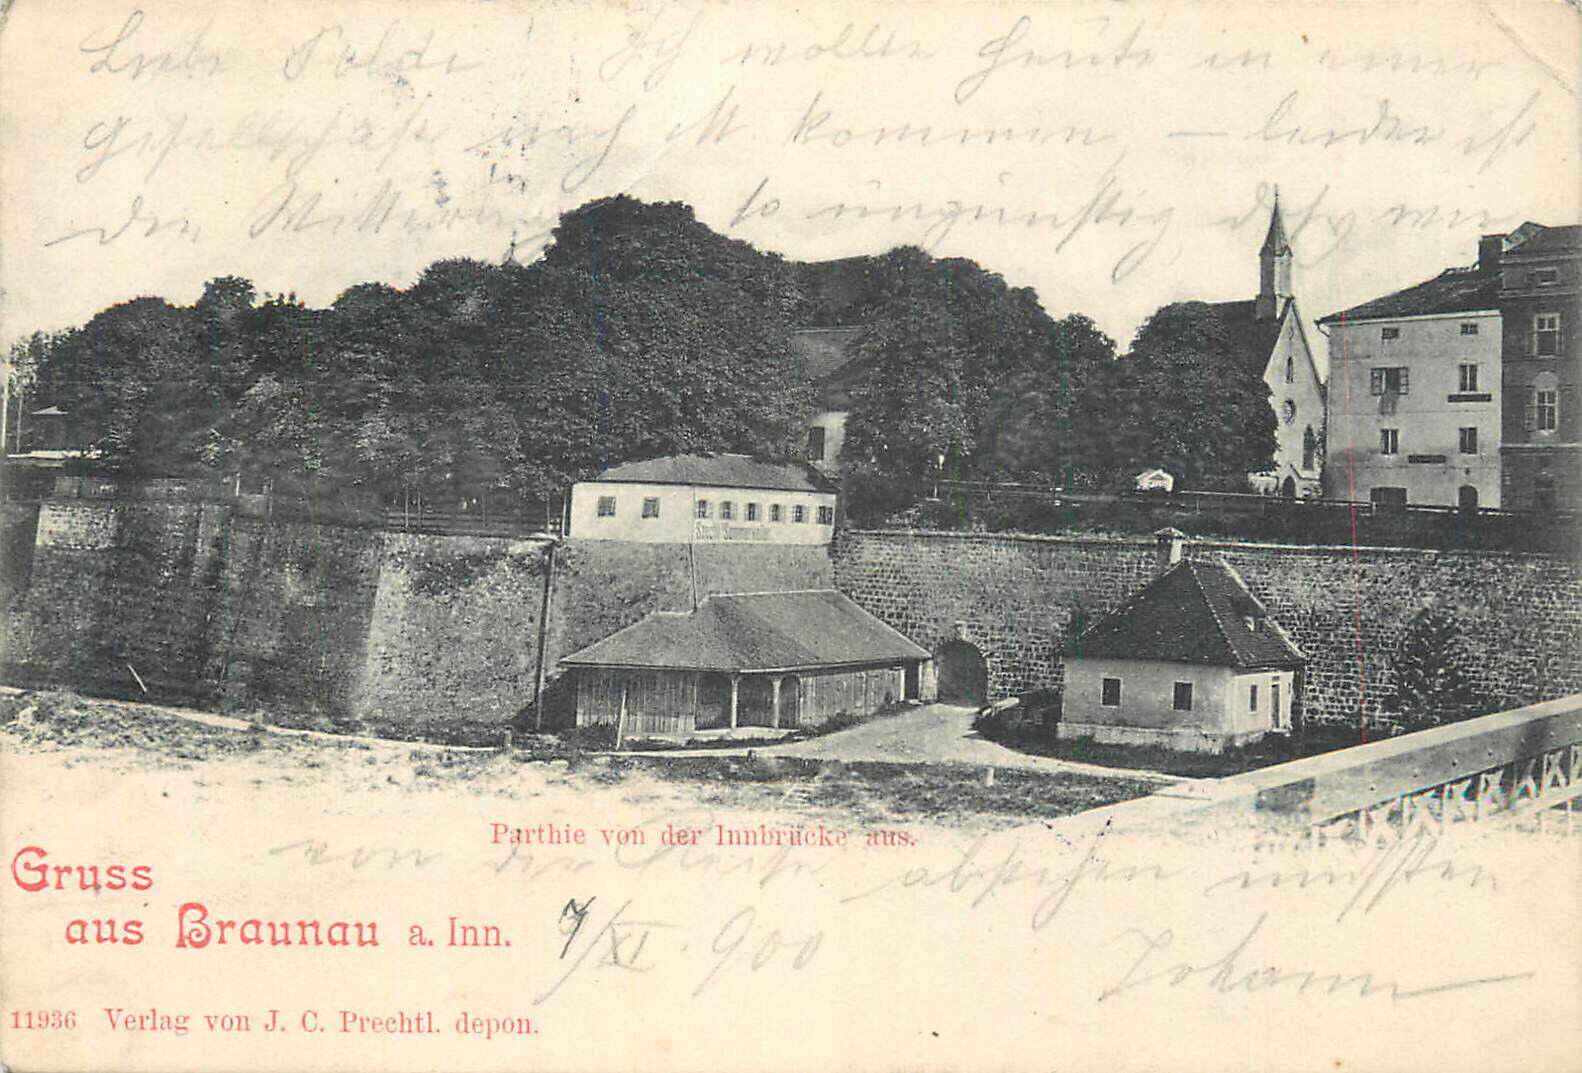 Liebe Poldi! Ich wollte heute in einer
Gesellschaft nach M. kommen, – leider ist
die Witterung so ungünstig daß wir
Parthie von der Innbrücke aus.
von der Reise abstehen mussten
Gruss
aus Braunau a. Inn.
7/XI. 900
Johann
11936 Verlag von J. C. Prechtl. depon.